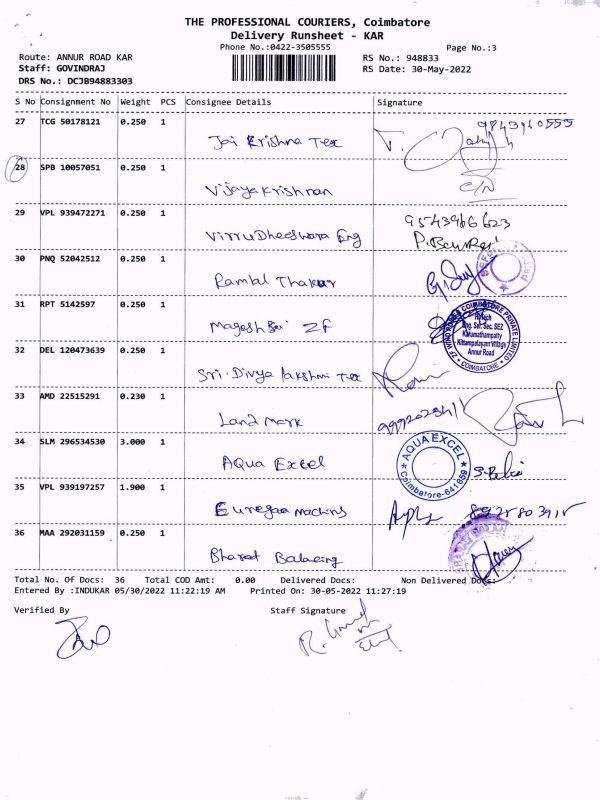 THE PROFESSIONAL COURIERS, Coimbatore
Delivery Runsheet - KAR
Phone No.:0422-3505555
Page No.:3
Route: ANNUR ROAD KAR
RS No.: 948833
Staff: GOVINDRAJ
RS Date: 30-May-2022
DRS No.: DCJB94883303
S No Consignment No Weight PCS Consignee Details Signature
27 TCG 50178121 0.250 1 Jai Krishna Tex 9843960555
28 SPB 10057051 0.250 1 Vijayakrishnan
29 VPL 939472271 0.250 1 Virrudheeswara Eng 9543966623
30 PNQ 52042512 0.250 1 Rambal Thakur
31 RPT 5142597 0.250 1 Magesh Sai ZF
ZF WIND POWER COIMBATORE PRIVATE LIMITED
Eng. Ser. Sec. SEZ
Karumathampatty
Kittampalayam Village
Annur Road
COIMBATORE
32 DEL 120473639 0.250 1 Sri. Divya lakshmi Tex
33 AMD 22515291 0.230 1 Land mark
34 SLM 296534530 3.000 1 AQua Excel
AQUA EXCEL
Coimbatore-641659
35 VPL 939197257 1.900 1 Euregaa machins
36 MAA 292031159 0.250 1 Bharat Balacing
Total No. Of Docs: 36 Total COD Amt: 0.00 Delivered Docs: Non Delivered Docs:
Entered By :INDUKAR 05/30/2022 11:22:19 AM Printed On: 30-05-2022 11:27:19
Verified By Staff Signature